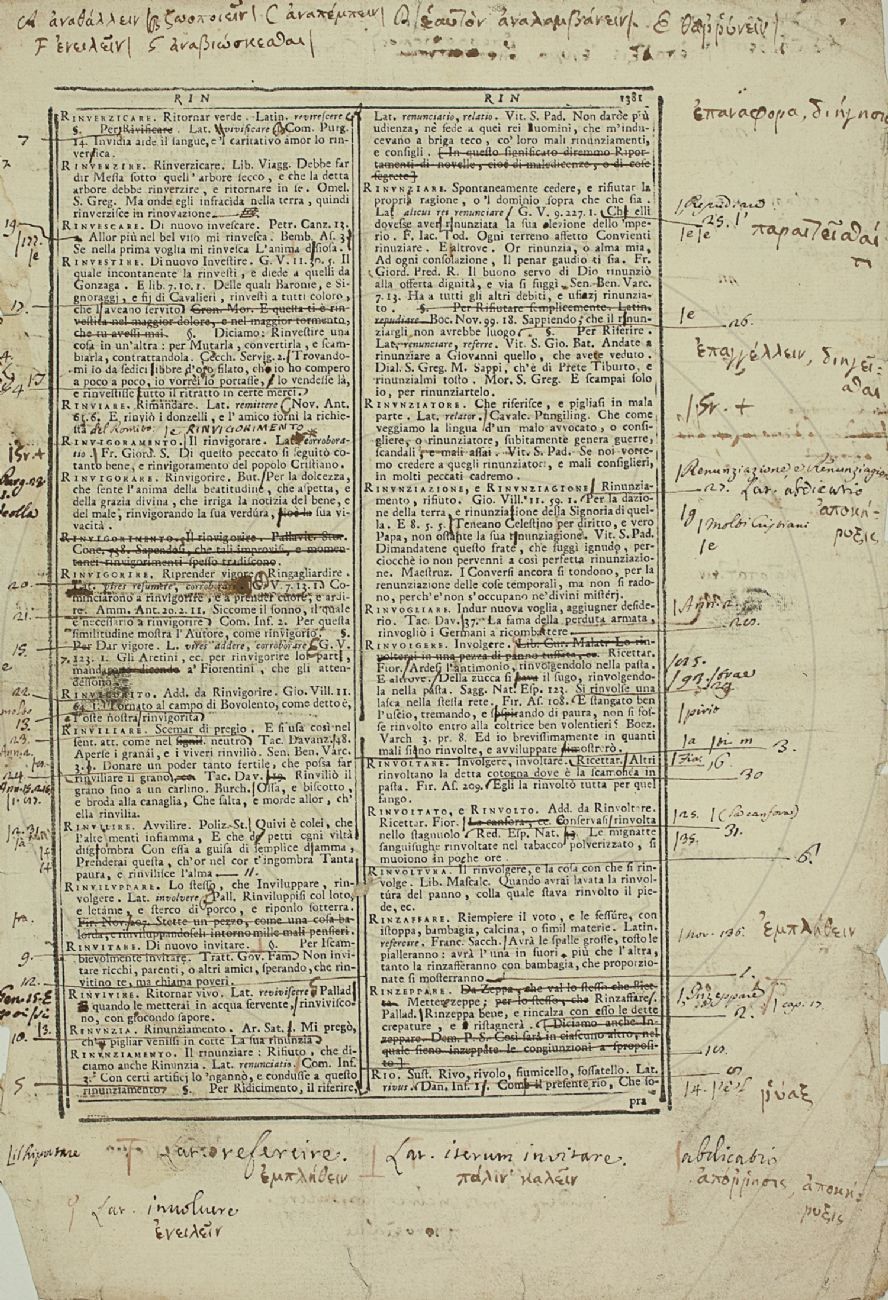 A ἀναθάλλειν B ζωοποιεῖν C ἀναπέμπειν D ἑαυτὸν ἀναλαμβάνειν E θαῤῥύνειν
F ἐνειλεῖν G ἀναβιώσκεσθαι
RIN
RINVERZICARE. Ritornar verde. Latin. revirescere
§. Per Rivificare. Lat. vivificare Com. Purg.
14. Invidia aide il sangue, e 'l caritativo amor lo rin-
verzica.
RINVERZIRE. Rinverzicare. Lib. Viagg. Debbe far
dir Messa sotto quell' arbore secco, e che la detta
arbore debbe rinverzire, e ritornare in se. Omel.
S. Greg. Ma onde egli infracida nella terra, quindi
rinverzisce in rinovazione.
RINVESCARE. Di nuovo invescare. Petr. Canz. 13.
Allor più nel bel viso mi rinvesca. Bemb. As. 3.
Se nella prima voglia mi rinvesca L'anima disiosa.
RINVESTIRE. Di nuovo Investire. G. V. 11. 50. 5. Il
quale incontanente la rinvestì, e diede a quelli da
Gonzaga. E lib. 7. 10. 1. Delle quali Baronie, e Si-
gnoraggi, e fij di Cavalieri, rinvestì a tutti coloro,
che l'aveano servito. Cron. Mor. E questa ti è rin-
vestita nel maggior dolore, e nel maggior tormento,
che tu avessi mai. §. Diciamo: Rinvestire una
cosa in un'altra: per Mutarla, convertirla, e scam-
biarla, contrattandola. Cecch. Servig. 2. Trovando-
mi io da sedici libbre d'oro filato, che io ho compero
a poco a poco, io vorrei lo portasse, lo vendesse là,
e rinvestisse tutto il ritratto in certe merci.
RINVIARE. Rimandare. Lat. remittere Nov. Ant.
61. 6. E rinviò i donzelli, e l'amico tornì la richie-
sta del Romito. e RINVIGORIMENTO
RINVIGORAMENTO. Il rinvigorare. Lat. corrobora-
tio. Fr. Giord. S. Di questo peccato si seguitò co-
tanto bene, e rinvigoramento del popolo Cristiano.
RINVIGORARE. Rinvigorire. But. Per la dolcezza,
che sente l'anima della beatitudine, che aspetta, e
della grazia divina, che irriga la notizia del bene, e
del male, rinvigorando la sua verdura, cioè la sua vi-
vacità.
RINVIGORIMENTO. Il rinvigorire. Pallavic. Stor.
Conc. 738. Sapendosi, che tali improvisi, e momen-
tanei rinvigorimenti spesso tradiscono.
RINVIGORIRE. Riprender vigore, Ringagliardire.
Lat. vires resumere, corroborari G. V. 7. 13. 12 Co-
minciarono a rinvigorire, e a prender cuore, e ardi-
re. Amm. Ant. 20. 2. 11. Siccome il sonno, il quale
è necessario a rinvigorire. Com. Inf. 2. Per questa
similitudine mostra l'Autore, come rinvigorìo. §.
Per Dar vigore. L. vires addere, corroborare G. V.
7. 123. 1. Gli Aretini, ec. per rinvigorire lor parti,
mandarono dicendo a' Fiorentini, che gli atten-
dessono.
RINVIGORITO. Add. da Rinvigorire. Gio. Vill. 11.
64. 1. Tornato al campo di Bovolento, come detto è,
l'oste nostra rinvigorita.
RINVILIARE. Scemar di pregio. E si usa così nel
sent. att. come nel neutro. Tac. Davanz. 48.
Aperse i granai, e i viveri rinviliò. Sen. Ben. Varc.
3. 9. Donare un poder tanto fertile, che possa far
rinviliare il grano, ec. Tac. Dav. Rinviliò il
grano sino a un carlino. Burch. Ossa, e biscotto,
e broda alla canaglia, Che salta, e morde allor, ch'
ella rinvilia.
RINVILIRE. Avvilire. Poliz. St. Quivi è colei, che
l'alte menti infiamma, E che de' petti ogni viltà
disgombra Con essa a guisa di semplice damma,
Prenderai questa, ch'or nel cor t'ingombra Tanta
paura, e rinvilisce l'alma 11.
RINVILUPPARE. Lo stesso, che Inviluppare, rin-
volgere. Lat. involvere Pall. Rinviluppisi col loto,
e letame, e sterco di porco, e riponlo sotterra.
Fir. Nov. 207. Stette un pezzo, come una cosa ba-
lorda, e rinviluppandoseli intorno mille mali pensieri.
RINVITARE. Di nuovo invitare. §. Per Iscam-
bievolmente invitare. Tratt. Gov. Fam. Non invi-
tare ricchi, parenti, o altri amici, sperando, che rin-
vitino te, ma chiama poveri.
RINVIVIRE. Ritornar vivo. Lat. reviviscere Pallad.
E quando le metterai in acqua servente, rinvivisco-
no, con giocondo sapore.
RINUNZIA. Rinunziamento. Ar. Sat. 1. Mi pregò,
ch'a pigliar venissi in corte La sua rinunzia.
RINUNZIAMENTO. Il rinunziare: Rifiuto, che di-
ciamo anche Rinunzia. Lat. renunciatio. Com. Inf.
3. Con certi artificj lo 'ngannò, e condusse a questo
rinunziamento. §. Per Ridicimento, il riferire.
RIN 1381
Lat. renunciatio, relatio. Vit. S. Pad. Non darde più
udienza, nè fede a quei rei huomini, che m'indu-
cevano a briga teco, co' loro mali rinunziamenti,
e consigli. [In questo significato diremmo Ripor-
tamenti di novelle, cioè di maledicenze, o di cose
segrete]
RINUNZIARE. Spontaneamente cedere, e rifiutar la
propria ragione, o 'l dominio sopra che che sia.
Lat. alicui rei renunciare. G. V. 9. 227. 1. Che elli
dovesse aver rinunziata la sua elezione dello 'mpe-
rio. F. Iac. Tod. Ogni terreno assetto Convienti
rinunziare. E altrove. Or rinunzia, o alma mia,
Ad ogni consolazione, Il penar gaudio ti sia. Fr.
Giord. Pred. R. Il buono servo di Dio rinunziò
alla offerta dignità, e via si fuggì. Sen. Ben. Varc.
7. 13. Ha a tutti gli altri debiti, e ufizj rinunzia-
to. §. Per Rifiutare semplicemente. Latin.
repudiare. Boc. Nov. 99. 18. Sappiendo, che il rinun-
ziargli, non avrebbe luogo. §. Per Riferire.
Lat. renunciare, referre. Vit. S. Gio. Bat. Andate a
rinunziare a Giovanni quello, che avete veduto.
Dial. S. Greg. M. Sappi, ch'è di Prete Tiburto, e
rinunzialmi tosto. Mor. S. Greg. E scampai solo
io, per rinunziartelo.
RINUNZIATORE. Che riferisce, e pigliasi in mala
parte. Lat. relator. Cavalc. Pungiling. Che come
veggiamo la lingua d'un malo avvocato, o consi-
gliere, o rinunziatore, subitamente genera guerre,
scandali e mali assai. Vit. S. Pad. Se noi vorre-
mo credere a quegli rinunziatori, e mali consiglieri,
in molti peccati cadremo.
RINUNZIAZIONE, e RINUNZIAGIONE. Rinunzia-
mento, rifiuto. Gio. Vill. 11. 59. 1. Per la dazio-
ne della terra, e rinunziazione della Signoria di quel-
la. E 8. 5. 5. Teneano Celestino per diritto, e vero
Papa, non ostante la sua rinunziagione. Vit. S. Pad.
Dimandatene questo frate, che fuggì ignudo, per-
ciocchè io non pervenni a così perfetta rinunziazio-
ne. Maestruz. I Conversi ancora si tondono, per la
renunziazione delle cose temporali, ma non si rado-
no, perch'e'non s'occupano ne'divini misterj.
RINVOGLIARE. Indur nuova voglia, aggiugner deside-
rio. Tac. Dav. 37. La fama della perduta armata,
rinvogliò i Germani a ricombattere.
RINVOLGERE. Involgere. Lib. Cur. Malatt. Lo rin-
volterai in una pezza di panno tuffato, ec. Ricettar.
Fior. Ardesi l'antimonio, rinvolgendolo nella pasta.
E altrove. Della zucca si cava il sugo, rinvolgendo-
la nella pasta. Sagg. Nat. Esp. 123. Si rinvolse una
lasca nella stessa rete. Fir. As. 108. E stangato ben
l'uscio, tremando, e sospirando di paura, non si fos-
se rinvolto entro alla coltrice ben volentieri. Boez.
Varch 3. pr. 8. Ed io brevissimamente in quanti
mali sieno rinvolte, e avviluppate dimostrerò.
RINVOLTARE. Involgere, involtare. Ricettar. Altri
rinvoltano la detta cotogna dove è la scamonea in
pasta. Fir. As. 209. Egli la rinvoltò tutta per quel
fango.
RINVOLTATO, e RINVOLTO. Add. da Rinvoltare.
Ricettar. Fior. La canfora, ec. Conservasi rinvolta
nello stagnuolo. Red. Esp. Nat. Le mignatte
sanguisughe rinvoltate nel tabacco polverizzato, si
muoiono in poche ore.
RINVOLTURA. Il rinvolgere, e la cosa con che si rin-
volge. Lib. Mascalc. Quando avrai lavata la rinvol-
tura del panno, colla quale stava rinvolto il pie-
de, ec.
RINZAFFARE. Riempiere il voto, e le fessure, con
istoppa, bambagia, calcina, o simil materie. Latin.
refercire. Franc. Sacch. Avrà le spalle grosse, tosto le
pialleranno: avrà l'una in fuori più che l'altra,
tanto la rinzafferanno con bambagia, che proporzio-
nate si mosterranno.
RINZEPPARE. Da Zeppa, che val lo stesso che Biet-
ta. Metter zeppe; per lo stesso, che Rinzaffare.
Pallad. Rinzeppa bene, e rincalza con esso le dette
crepature, e ristagnerà. [Diciamo anche In-
zeppare. Dem. P. S. Così sarà in ciascuno altro, nel
quale sieno inzeppate le congiunzioni a sproposi-
to.]
RIO. Sust. Rivo, rivolo, fiumicello, fossatello. Lat.
rivus. Dan. Inf. 1. Come il presente rio, Che so-
pra
ἐπαναφορα, διήγησις
Repudiare
25. 1'
παραιτεῖσθαι
le
26.
ἐπαγγέλλειν, διηγεῖ-
σθαι
Sr. +
Renunziazione e Renunziagione
27. Lat. abdicatio
ἀποκή-
ρυξις
molti Cristiani
le
3.
30
31.
6.
ἐμπλήθειν
Inzeppare
2. cap. 17
14.
ῥύαξ
Lat. refercire.
ἐμπλήθειν
Lat. iterum invitare.
πάλιν καλεῖν
abdicatio
ἀπόῤῥησις, ἀποκή-
ρυξις
Lat. involvere
ἐνειλεῖν